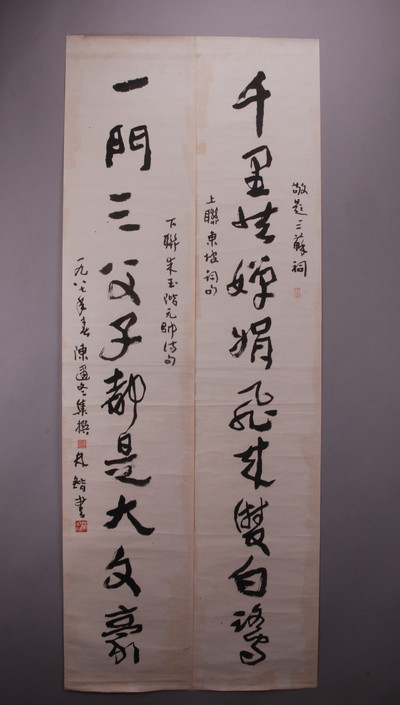 敬題三蘇祠
千里共嬋娟飛來雙白鷺
上聯東坡詞句
下聯朱玉階元帥詩句
一門三父子都是大文豪
一九八七年春陳邇冬集撰 林鍇書